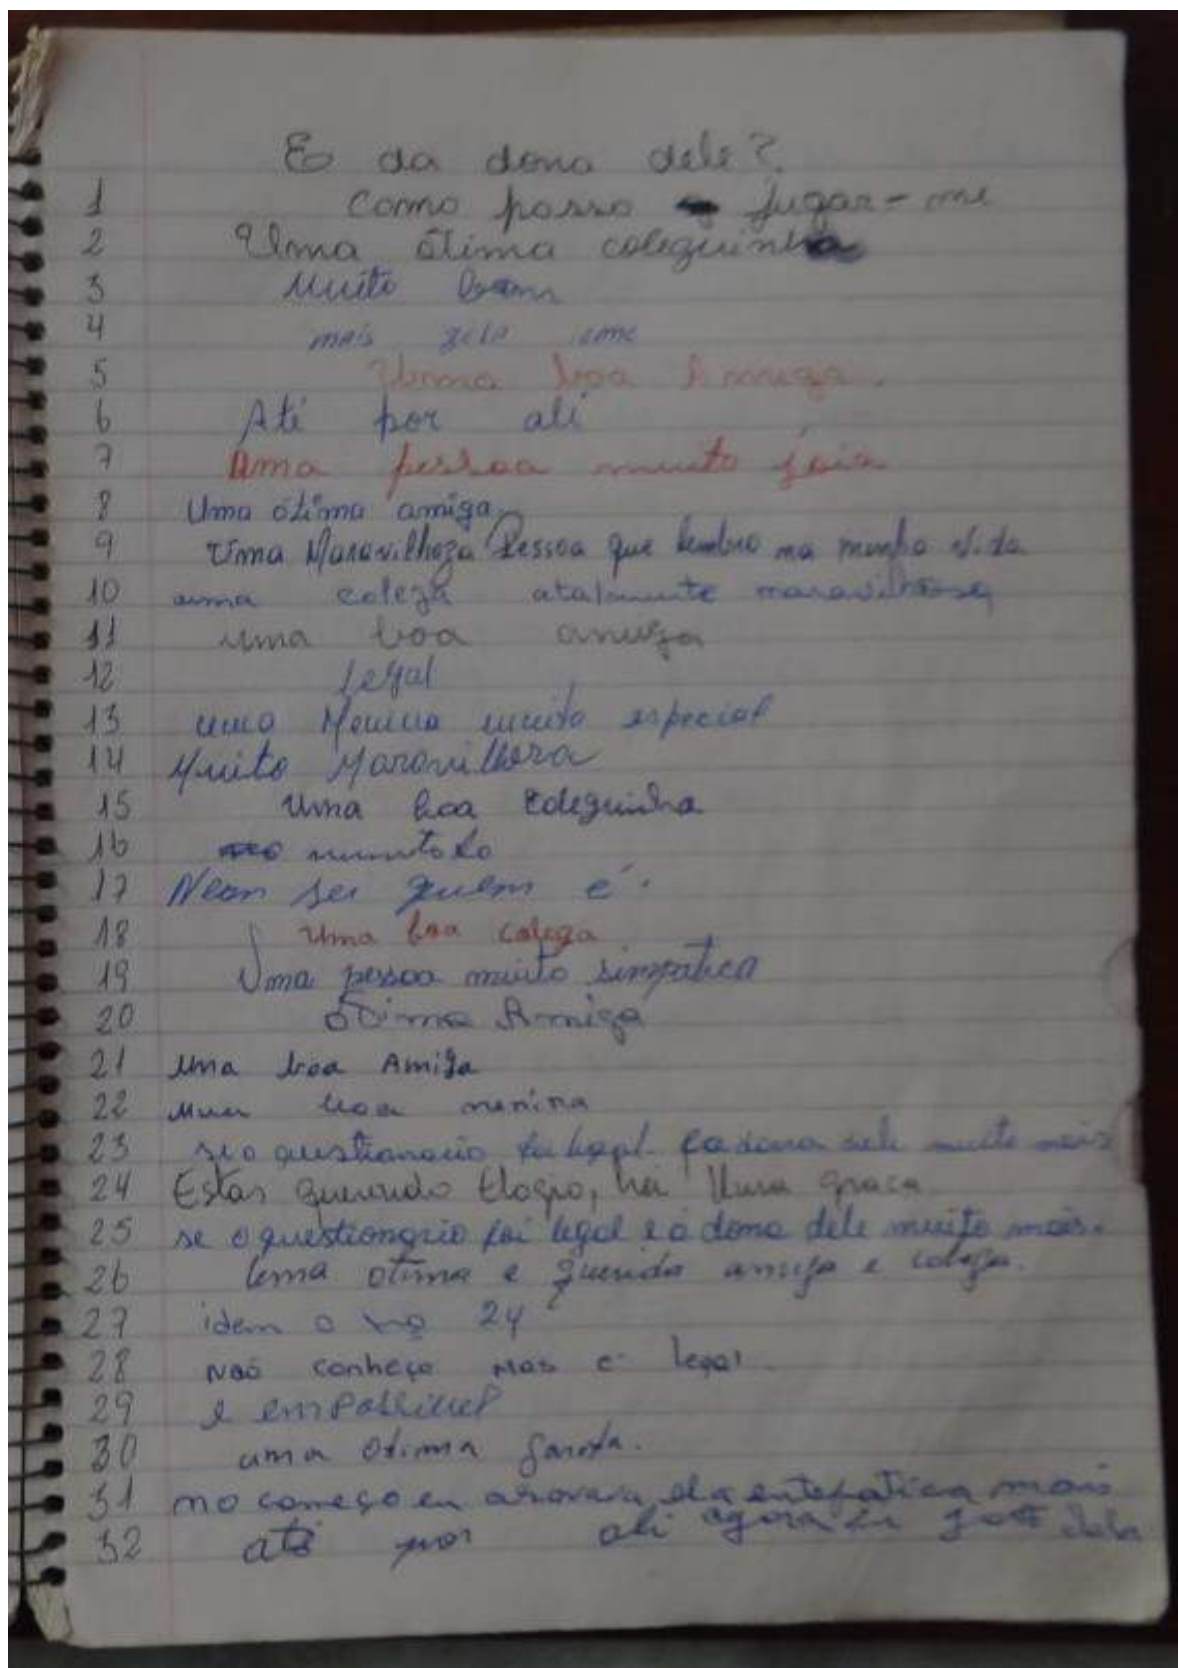 E o da dona dele?
1 Como posso jugar-me
2 Uma ótima coleguinha
3 Muito bem
4 mais
5 Uma boa Amiga.
6 Até por ali
7 Uma pessoa muito joia
8 Uma ótima amiga
9 Uma Maravilhoza Pessoa que lembro na minha vida
10 uma colega maravilhosa
11 uma boa amiga
12 legal
13 uma Menina muito especial
14 Muito Maravilhoza
15 Uma boa coleguinha
16
17 Nean sei quem é.
18 Uma boa colega
19 Uma pessoa muito simpatica
20 Ótima Amiga
21 Uma boa Amiga
22 boa menina
23 se o questionario foi legal e a dona dele muito mais
24 Estas querendo Elogio, há Uma graca
25 se o questionario foi legal e a dona dele muito mais.
26 Uma otima e querida amiga e colega.
27 idem o nº 24
28 Não conheço mas é legal
29 e empossivel
30 uma otima garota.
31 no começo eu axava ela antepatica mais
32 até por ali agora eu dela